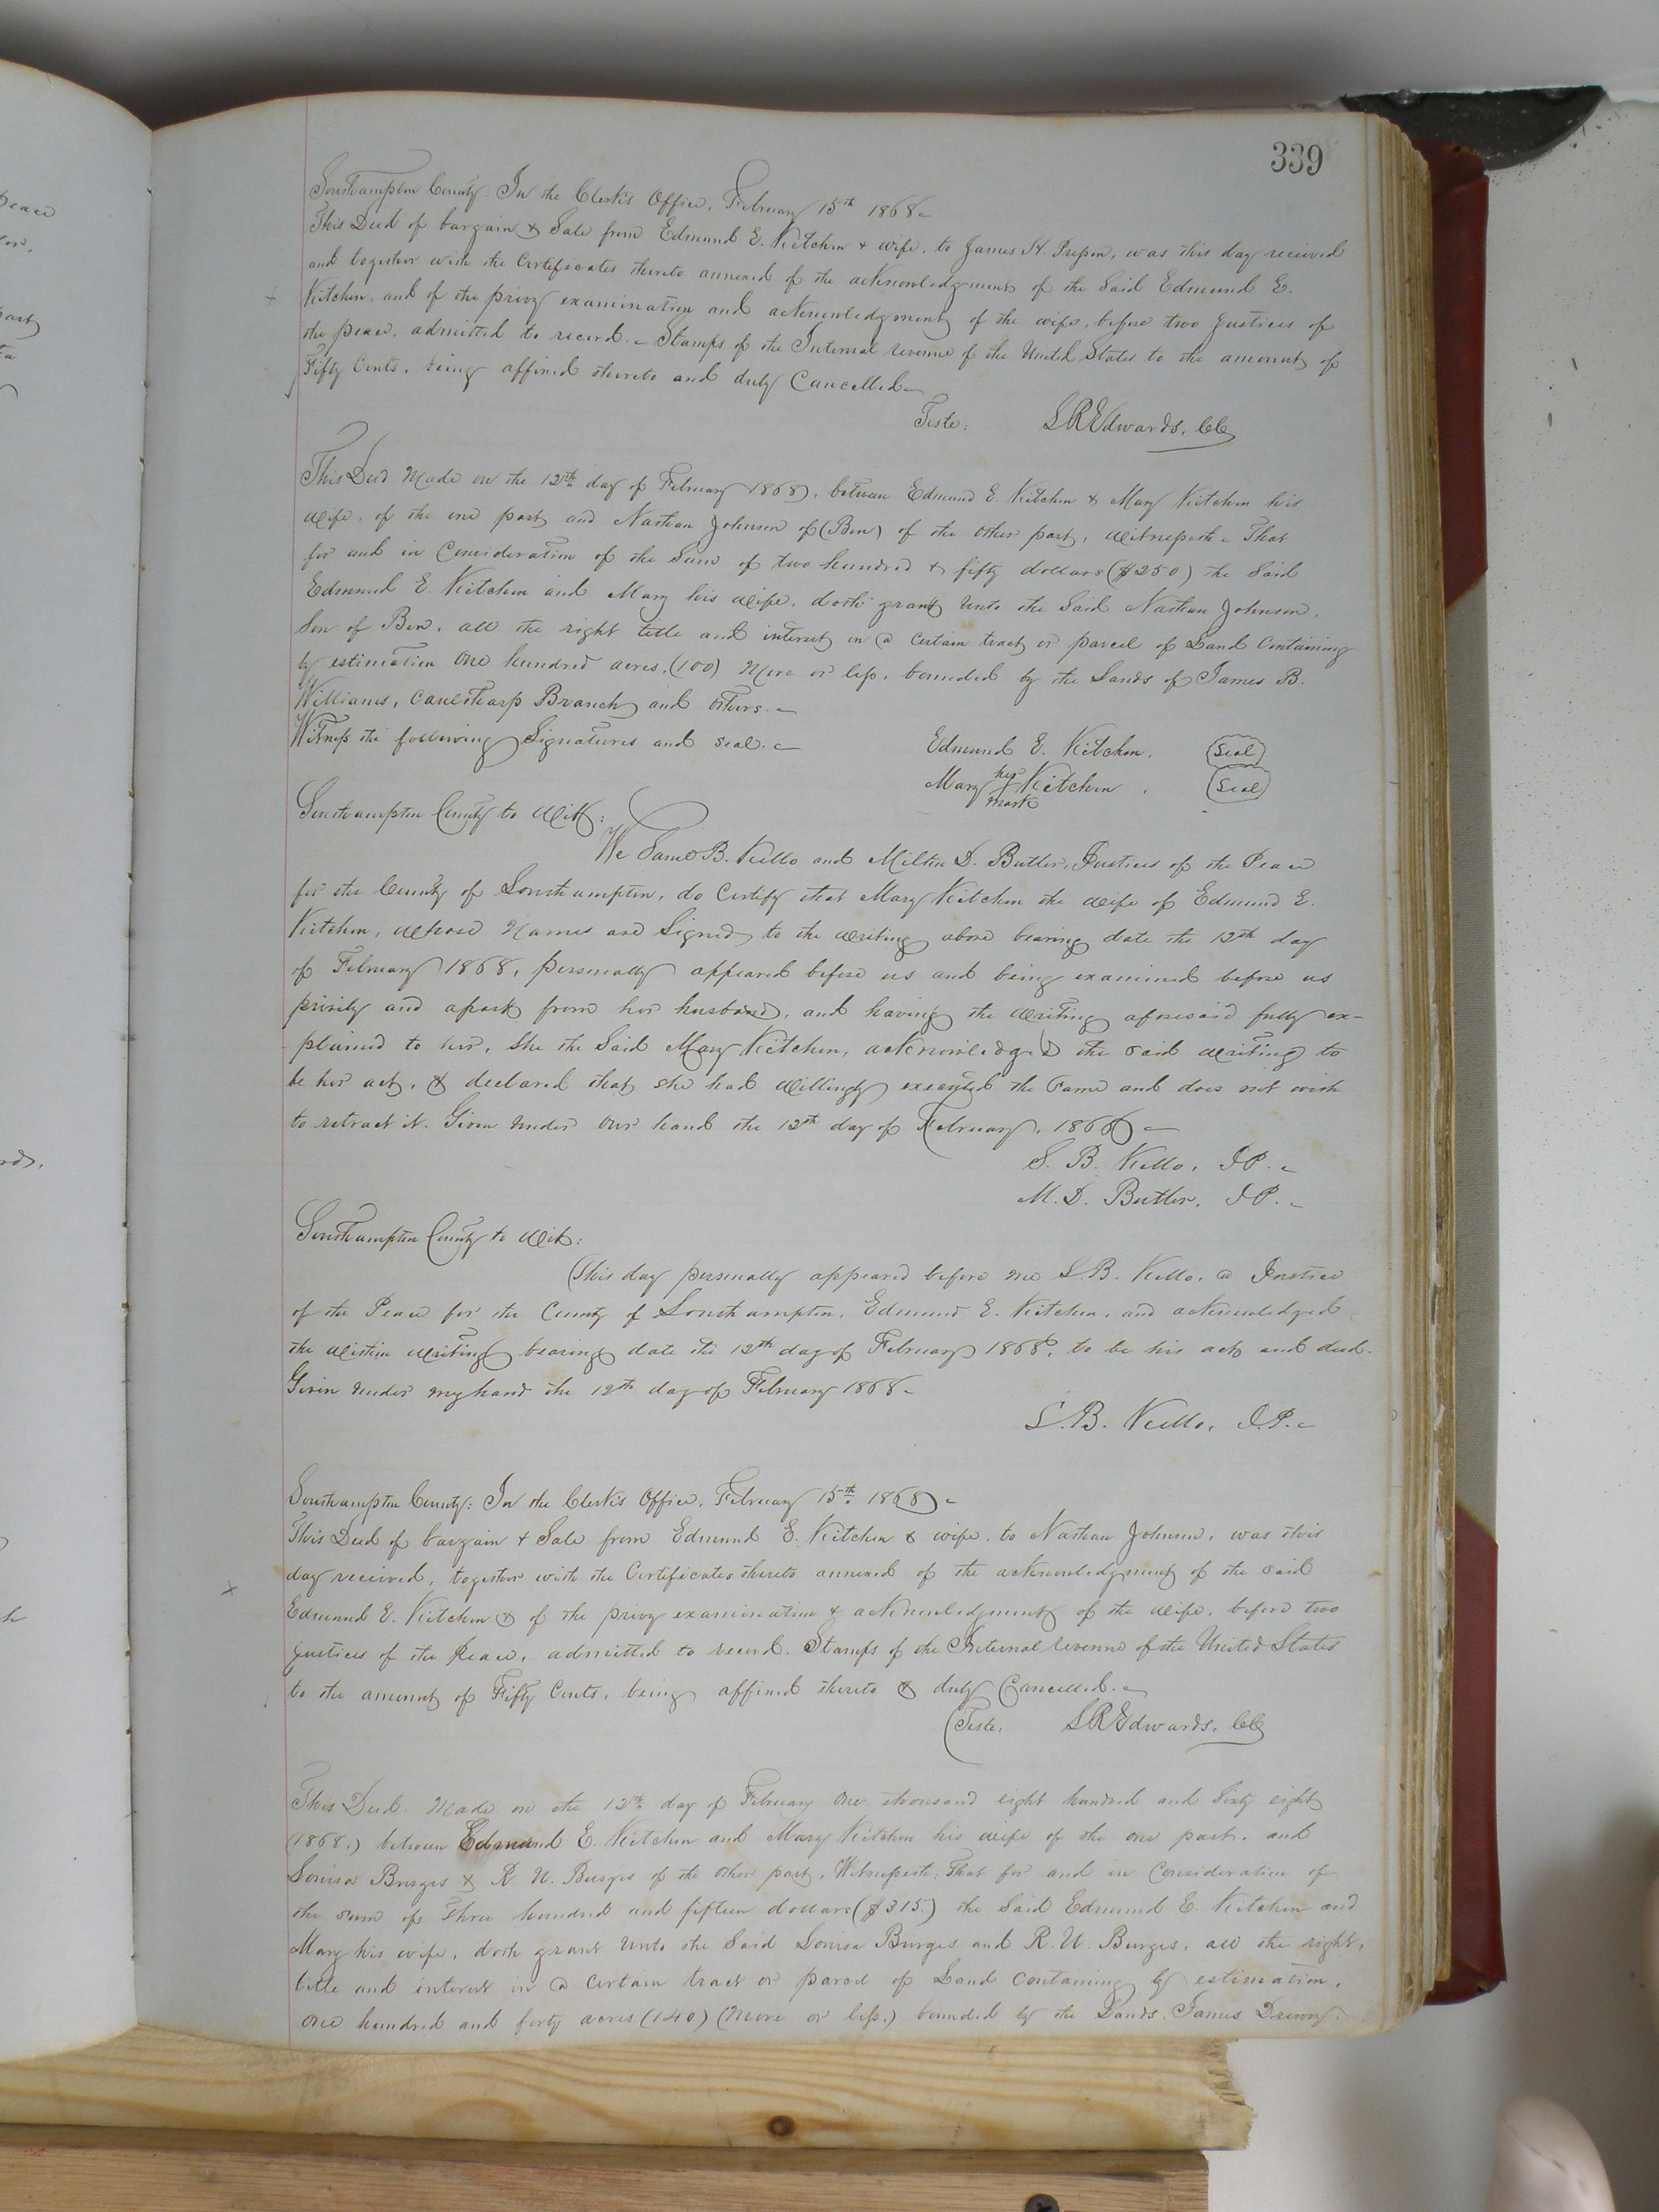 339
Southampton County: In the Clerk's Office, February 15th 1868
This Deed of bargain & Sale from Edmund E. Kitchen & wife, to James H. was this day received
and together with the Certificates thereto annexed of the acknowledgment of the said Edmund E.
Kitchen, and of the privy examination and acknowledgment of the wife, before two Justices of
the peace, admitted to record. Stamps of the Internal revenue of the United States to the amount of
Fifty Cents, being affixed thereto and duly Cancelled
Teste: LREdwards, CC
This Deed Made on the 12th day of February 1868, between Edmund E. Kitchen & Mary Kitchen his
wife, of the one part and Nathan Johnson of (Ben) of the other part, witnesseth That
for and in Consideration of the Sum of two hundred & fifty dollars ($250) the Said
Edmund E. Kitchen and Mary his wife, doth grant unto the Said Nathan Johnson,
Son of Ben, all the right title and interest in a certain tract or parcel of Land Containing
by estimation One hundred acres, (100) More or less, bounded by the Lands of James B.
Williams, Branch and others.
Witness the following Signatures and seal.
Edmund E. Kitchen. (Seal)
her
Mary Kitchen. (Seal)
mark
Southampton County to Wit:
We B. Kello and Milton D. Butler, Justices of the Peace
for the County of Southampton, do Certify that Mary Kitchen the wife of Edmund E.
Kitchen, whose Names are Signed to the writing above bearing date the 12th day
of February 1868, personally appeared before us and being examined before us
privily and apart from her husband, and having the writing aforesaid fully ex-
plained to her, She the Said Mary Kitchen, acknowledged the said writing to
be her act, & declared that she had willingly executed the same and does not wish
to retract it. Given under Our hand the 12th day of February, 1868
S. B. Kello, JP.
M. D. Butler, JP.
Southampton County to Wit:
This day personally appeared before me S. B. Kello, a Justice
of the Peace for the County of Southampton, Edmund E. Kitchen, and acknowledged
the within writing bearing date the 12th day of February 1868, to be his act and deed.
Given under my hand the 12th day of February 1868
S. B. Kello, J.P.
Southampton County: In the Clerk's Office, February 15th 1868
This Deed of bargain & Sale from Edmund E. Kitchen & wife, to Nathan Johnson, was this
day received, together with the Certificates thereto annexed of the acknowledgment of the said
Edmund E. Kitchen & of the privy examination & acknowledgment of the wife, before two
justices of the Peace, admitted to record. Stamps of the Internal revenue of the United States
to the amount of Fifty Cents, being affixed thereto & duly Cancelled.
Teste: LREdwards, CC
This Deed Made on the 12th day of February One thousand eight hundred and Sixty eight
(1868,) between Edmund E. Kitchen and Mary Kitchen his wife of the one part, and
Louisa Burges & R. W. Burges of the other part, Witnesseth: That for and in Consideration of
the sum of Three hundred and fifteen dollars ($315) the Said Edmund E. Kitchen and
Mary his wife, doth grant Unto the Said Louisa Burges and R. W. Burges, all the right,
title and interest in a certain tract or parcel of Land containing by estimation,
One hundred and forty acres (140) (More or less,) bounded by the Lands, James Drewry,